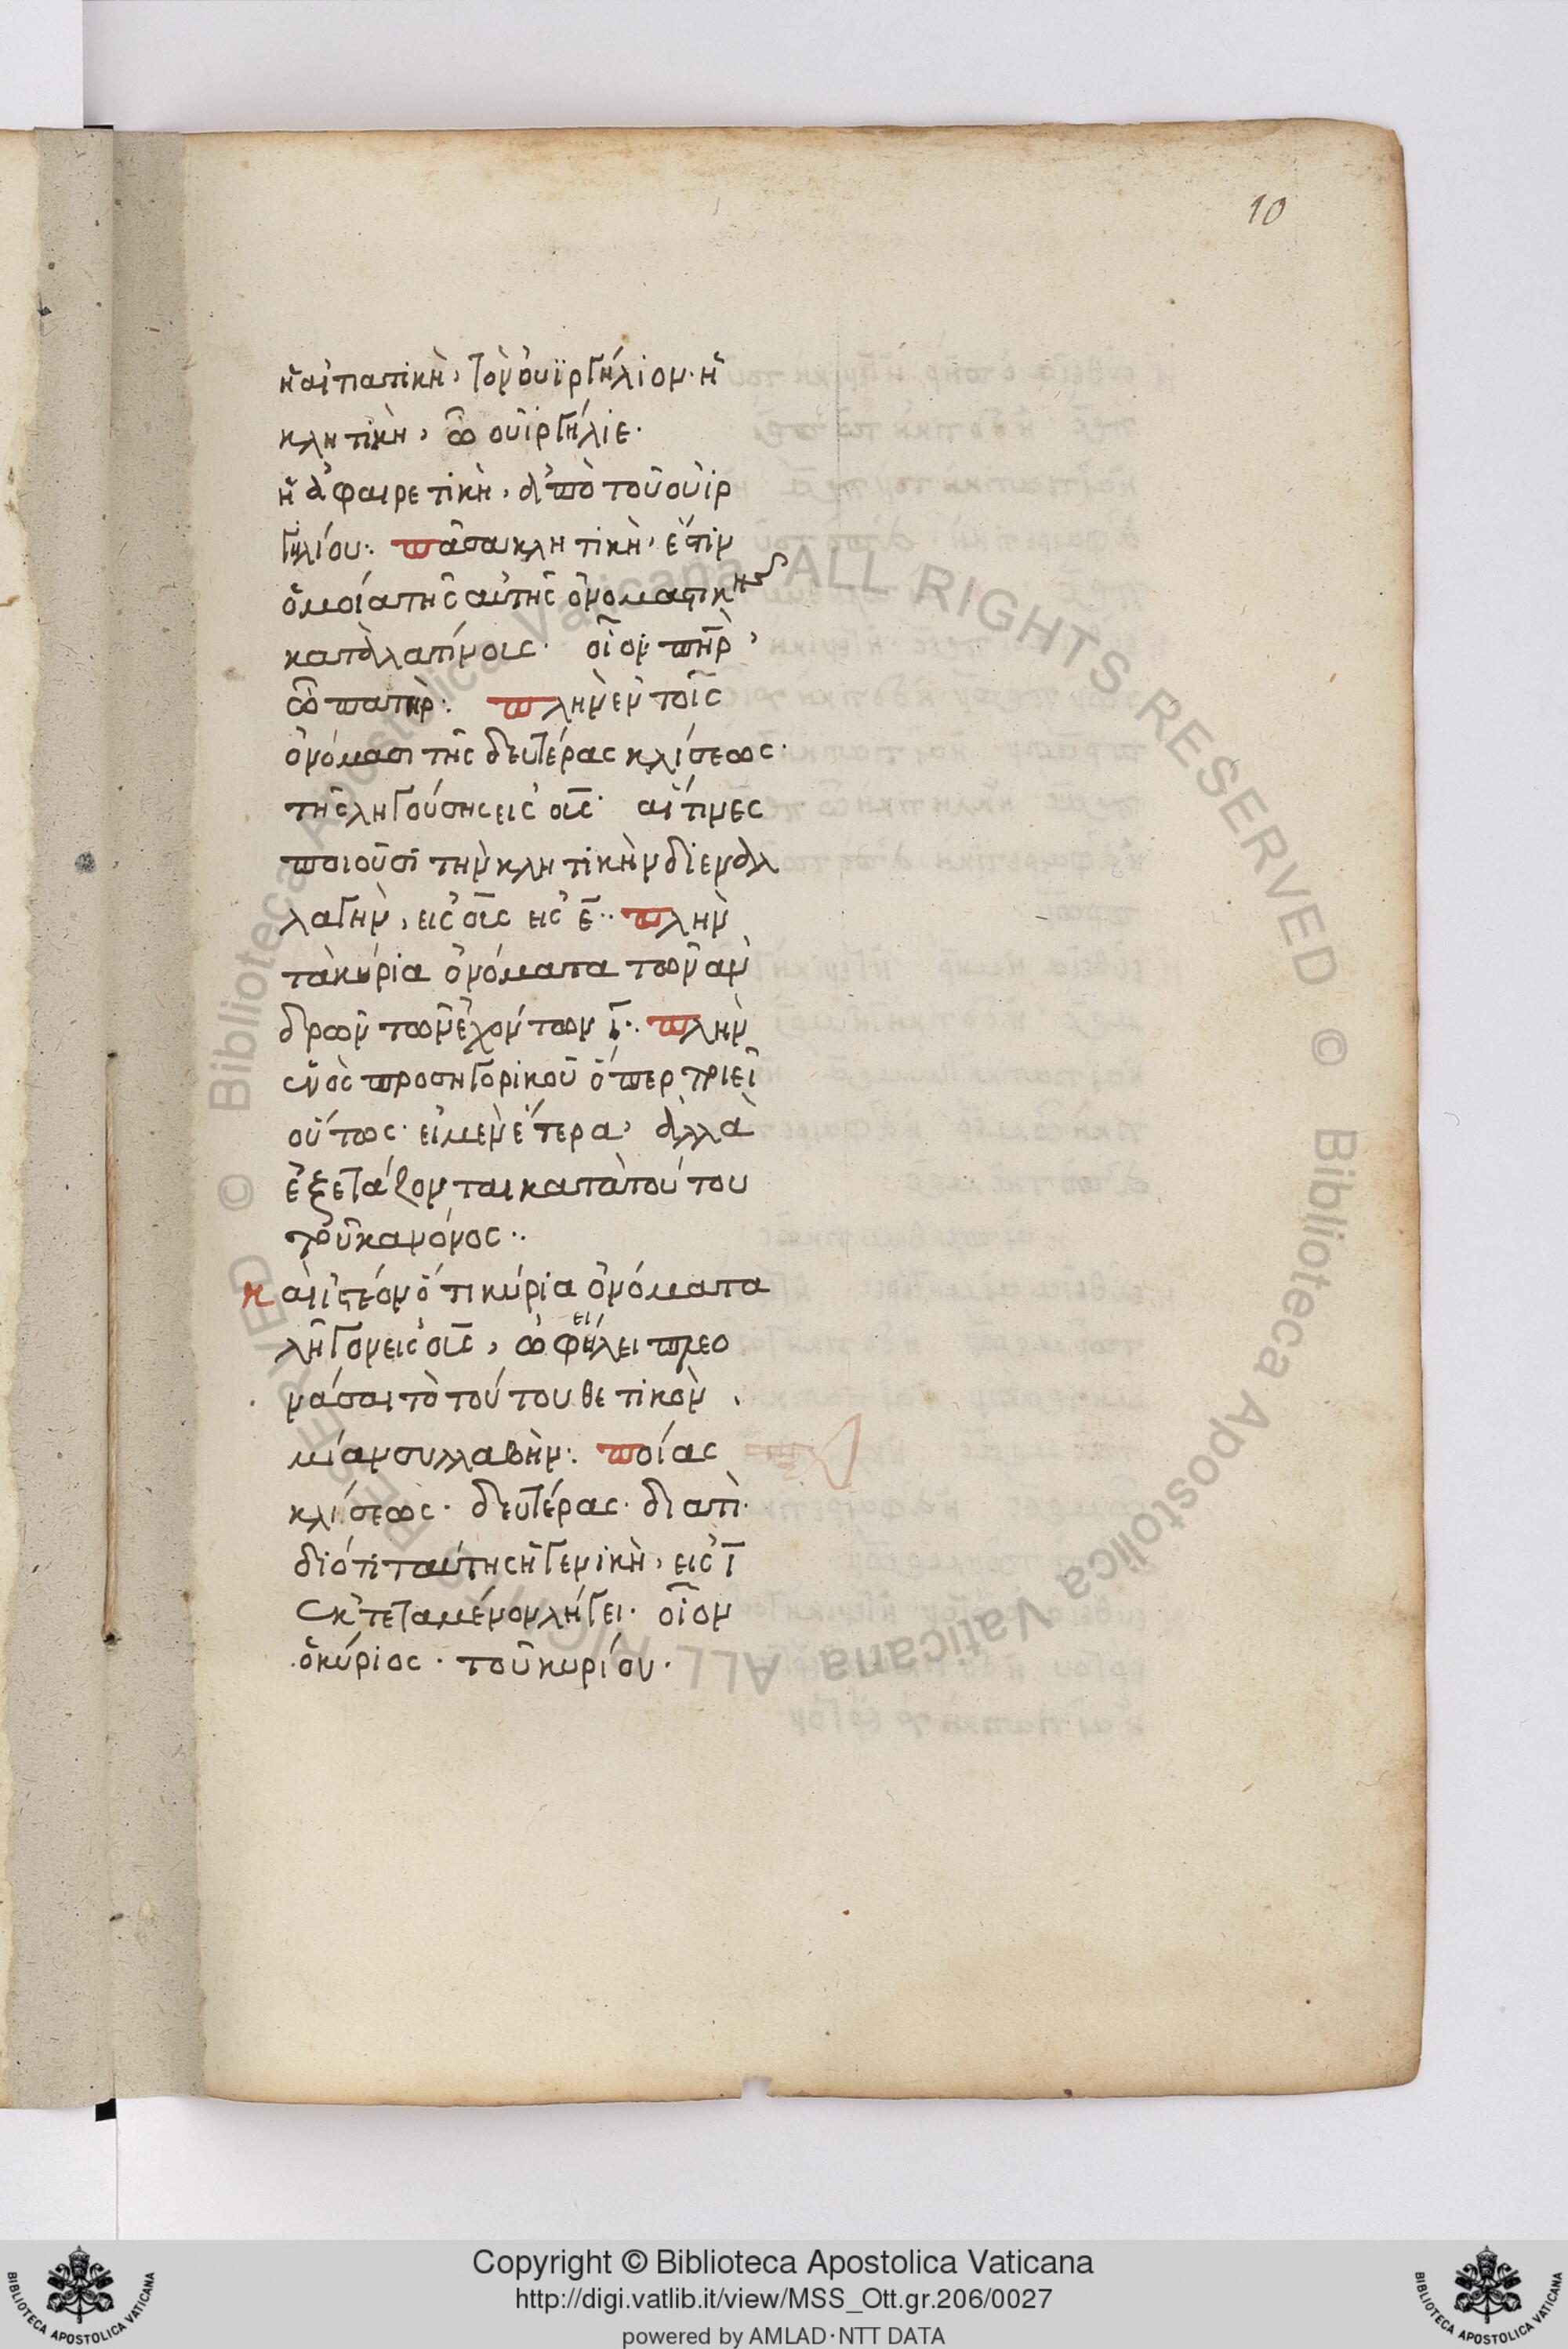 10
ἡ αἰτιατικὴ, τὸν ὀυϊργήλιον. ἡ
κλητικὴ, ὦ οὐιργήλιε.
ἡ ἀφαιρετικὴ, ἀπὸ τοῦ οὐιρ
γιλίου: πᾶσα κλητικὴ, ἔστιν
ὁμοία τῆς αὐτῆς ὀνομαστικῆς
κατὰ λατίνοις. οἷον πῆρ,
ὦ πατὴρ: πλὴν ἐν τοῖς
ὀνόμασι τῆς δευτέρας κλίσεως.
τῆς ληγούσης εἰς ους. αἵτινες
ποιοῦσι τὴν κλητικὴν δι ἐναλ
λαγὴν, εἰς ους εἰς ε̄.. πλὴν
τὰ κύρια ὀνόματα τῶν ἀν
δρῶν τῶν ἐχόντων ῑ.. πλὴν
ἑνὸς προσηγορικοῦ ὅπερ ποιεῖ
οὕτως. εἰ μὲν ἕτερα, ἀλλὰ
ἐξετάζονται κατὰ τούτου
τοῦ κανόνος..
καὶ ἰστέον ὅτι κύρια ὀνόματα
λῆγον εἰς ους, ὠφείλει πλεο
νάσαι τὸ τούτου θετικὸν,
μίαν συλλαβὴν: ποίας
κλίσεως. δευτέρας. διατὶ.
διότι ταύτης ἡ γενικὴ, εἰς ῑ
ἐκτεταμένον λήγει. οἷον
ὁ κύριος. τοῦ κυρίου.
Copyright © Biblioteca Apostolica Vaticana
http://digi.vatlib.it/view/MSS_Ott.gr.206/0027
powered by AMLAD·NTT DATA